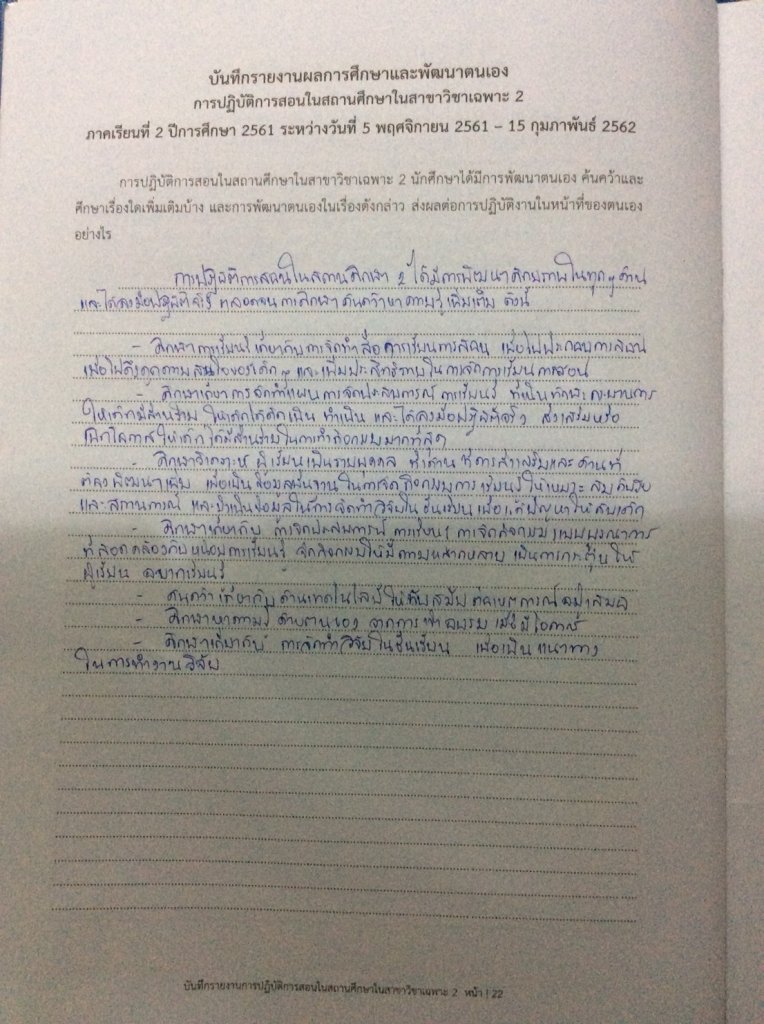 บันทึกรายงานผลการศึกษาและพัฒนาตนเอง
การปฏิบัติการสอนในสถานศึกษาในสาขาวิชาเฉพาะ 2
ภาคเรียนที่ 2 ปีการศึกษา 2561 ระหว่างวันที่ 5 พฤศจิกายน 2561 – 15 กุมภาพันธ์ 2562
การปฏิบัติการสอนในสถานศึกษาในสาขาวิชาเฉพาะ 2 นักศึกษาได้มีการพัฒนาตนเอง ค้นคว้าและ
ศึกษาเรื่องใดเพิ่มเติมบ้าง และการพัฒนาตนเองในเรื่องดังกล่าว ส่งผลต่อการปฏิบัติงานในหน้าที่ของตนเอง
อย่างไร
การปฏิบัติการสอนในสถานศึกษา 2 ได้มีการพัฒนาศักยภาพในทุกๆ ด้าน
และได้ลงมือปฏิบัติจริง ตลอดจนการศึกษา ค้นคว้าหาความรู้เพิ่มเติม ดังนี้
- ศึกษาการเรียนรู้เกี่ยวกับการจัดทำสื่อการเรียนการสอน เพื่อใช้ประกอบการสอน
เพื่อให้ดึงดูดความสนใจของเด็กๆ และเพิ่มประสิทธิภาพในการจัดการเรียนการสอน
- ศึกษาเกี่ยวการจัดทำแผนการจัดประสบการณ์การเรียนรู้ ที่เน้นทักษะกระบวนการ
ให้เด็กมีส่วนร่วม ให้เด็กได้คิดเป็น ทำเป็น และได้ลงมือปฏิบัติจริง ส่งเสริมหรือ
เปิดโอกาสให้เด็กได้มีส่วนร่วมในการทำกิจกรรมมากที่สุด
- ศึกษาวิเคราะห์ ผู้เรียนเป็นรายบุคคล ทั้งด้าน ที่ควรส่งเสริมและด้านที่
ต้องพัฒนาเพิ่ม เพื่อเป็นข้อมูลพื้นฐานในการจัดกิจกรรมการเรียนรู้ให้เหมาะสมกับวัย
และสถานการณ์ และนำเป็นข้อมูลในการจัดทำวิจัยในชั้นเรียน เพื่อแก้ปัญหาให้กับเด็ก
- ศึกษาเกี่ยวกับ การจัดประสบการณ์ การเรียนรู้ การจัดกิจกรรมแบบบูรณาการ
ที่สอดคล้องกับหน่วยการเรียนรู้ จัดกิจกรรมให้มีความหลากหลาย เป็นการกระตุ้นให้
ผู้เรียน อยากเรียนรู้
- ค้นคว้าเกี่ยวกับด้านเทคโนโลยีให้ทันสมัย ต่อเหตุการณ์อยู่เสมอ
- ศึกษาหาความรู้ด้วยตนเอง จากการเข้าอบรม เมื่อมีโอกาส
- ศึกษาเกี่ยวกับ การจัดทำวิจัยในชั้นเรียน เพื่อเป็นแนวทาง
ในการทำงานวิจัย
บันทึกรายงานการปฏิบัติการสอนในสถานศึกษาในสาขาวิชาเฉพาะ 2 หน้า | 22